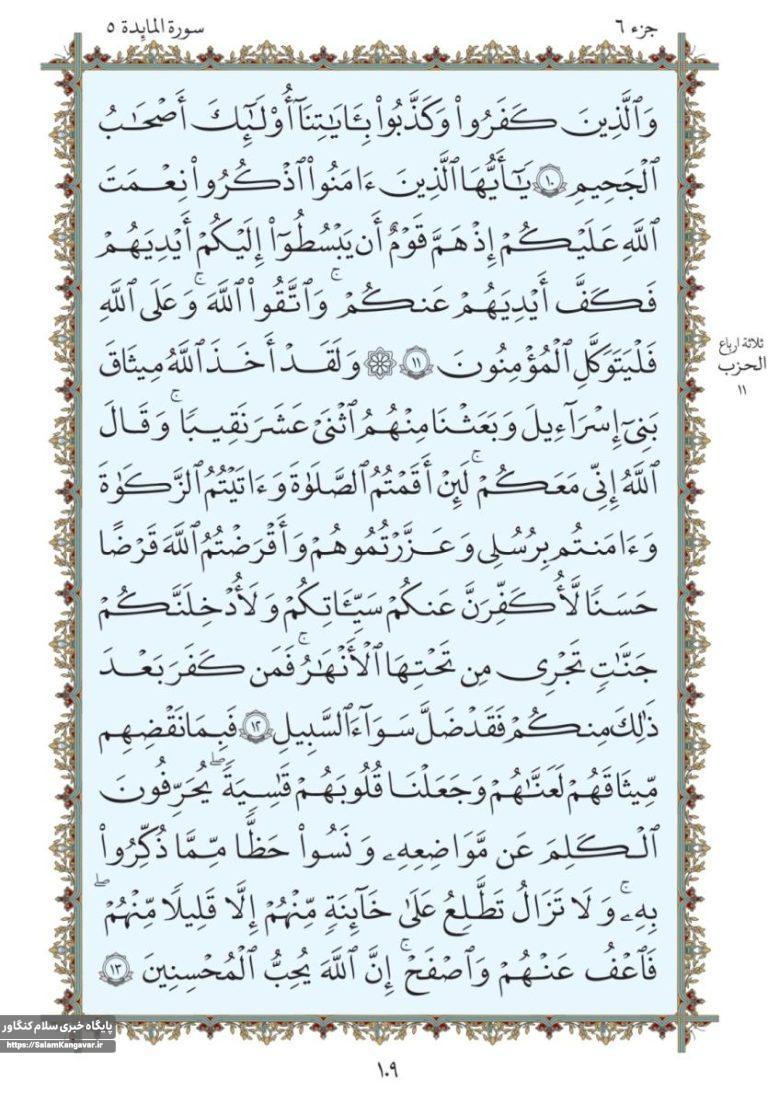 جزء ٦
سورة المائدة ٥
وَٱلَّذِينَ كَفَرُوا۟ وَكَذَّبُوا۟ بِـَٔايَـٰتِنَآ أُو۟لَـٰٓئِكَ أَصْحَـٰبُ
ٱلْجَحِيمِ ۝١٠ يَـٰٓأَيُّهَا ٱلَّذِينَ ءَامَنُوا۟ ٱذْكُرُوا۟ نِعْمَتَ
ٱللَّهِ عَلَيْكُمْ إِذْ هَمَّ قَوْمٌ أَن يَبْسُطُوٓا۟ إِلَيْكُمْ أَيْدِيَهُمْ
فَكَفَّ أَيْدِيَهُمْ عَنكُمْ ۚ وَٱتَّقُوا۟ ٱللَّهَ ۚ وَعَلَى ٱللَّهِ
فَلْيَتَوَكَّلِ ٱلْمُؤْمِنُونَ ۝١١ ۞ وَلَقَدْ أَخَذَ ٱللَّهُ مِيثَـٰقَ
ثلاثة ارباع
الحزب
١١
بَنِىٓ إِسْرَٰٓءِيلَ وَبَعَثْنَا مِنْهُمُ ٱثْنَىْ عَشَرَ نَقِيبًا ۖ وَقَالَ
ٱللَّهُ إِنِّى مَعَكُمْ ۖ لَئِنْ أَقَمْتُمُ ٱلصَّلَوٰةَ وَءَاتَيْتُمُ ٱلزَّكَوٰةَ
وَءَامَنتُم بِرُسُلِى وَعَزَّرْتُمُوهُمْ وَأَقْرَضْتُمُ ٱللَّهَ قَرْضًا
حَسَنًا لَّأُكَفِّرَنَّ عَنكُمْ سَيِّـَٔاتِكُمْ وَلَأُدْخِلَنَّكُمْ
جَنَّـٰتٍ تَجْرِى مِن تَحْتِهَا ٱلْأَنْهَـٰرُ ۚ فَمَن كَفَرَ بَعْدَ
ذَٰلِكَ مِنكُمْ فَقَدْ ضَلَّ سَوَآءَ ٱلسَّبِيلِ ۝١٢ فَبِمَا نَقْضِهِم
مِّيثَـٰقَهُمْ لَعَنَّـٰهُمْ وَجَعَلْنَا قُلُوبَهُمْ قَـٰسِيَةً ۖ يُحَرِّفُونَ
ٱلْكَلِمَ عَن مَّوَاضِعِهِۦ وَنَسُوا۟ حَظًّا مِّمَّا ذُكِّرُوا۟
بِهِۦ ۚ وَلَا تَزَالُ تَطَّلِعُ عَلَىٰ خَآئِنَةٍ مِّنْهُمْ إِلَّا قَلِيلًا مِّنْهُمْ ۖ
فَٱعْفُ عَنْهُمْ وَٱصْفَحْ ۚ إِنَّ ٱللَّهَ يُحِبُّ ٱلْمُحْسِنِينَ ۝١٣
پایگاه خبری سلام کنگاور
https://SalamKangavar.ir
١٠٩